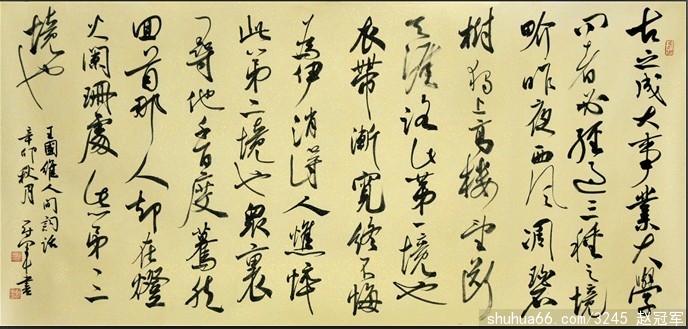 古之成大事業大學
问者必經過三種之境
畍昨夜西风凋碧
樹独上高樓望断
天涯路此第一境也
衣帶漸寬終不悔
為伊消得人憔悴
此第二境也眾裏
尋他千百度驀然
回首那人却在燈
火闌珊處此第三
境也
王國維人间詞話
辛卯秋月冠軍書
shuhua66.com/3245 赵冠军